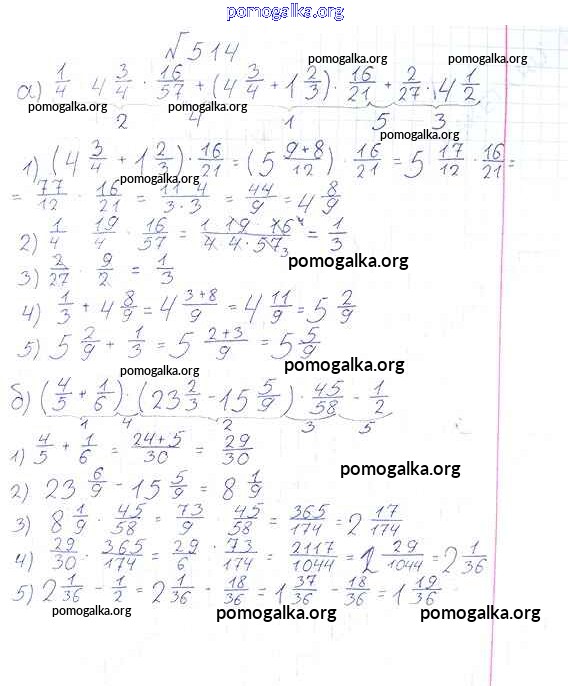 pomogalka.org
№514
pomogalka.org pomogalka.org
а) 1/4 · 4 3/4 · 16/57 + (4 3/4 + 1 2/3) · 16/21 + 2/27 · 4 1/2
pomogalka.org pomogalka.org pomogalka.org
2 4 1 5 3
pomogalka.org
1) (4 3/4 + 1 2/3) · 16/21 = (5 (9+8)/12) · 16/21 = 5 17/12 · 16/21 =
pomogalka.org
= 77/12 · 16/21 = (11·4)/(3·3) = 44/9 = 4 8/9
2) 1/4 · 19/4 · 16/57 = (1·19·16)/(4·4·57) 3 = 1/3
pomogalka.org
3) 2/27 · 9/2 = 1/3
4) 1/3 + 4 8/9 = 4 (3+8)/9 = 4 11/9 = 5 2/9
5) 5 2/9 + 1/3 = 5 (2+3)/9 = 5 5/9
pomogalka.org pomogalka.org
б) (4/5 + 1/6) · (23 2/3 - 15 5/9) · 45/58 - 1/2
1 4 2 3 5
1) 4/5 + 1/6 = (24+5)/30 = 29/30
pomogalka.org
2) 23 6/9 - 15 5/9 = 8 1/9
3) 8 1/9 · 45/58 = 73/9 · 45/58 = 365/174 = 2 17/174
pomogalka.org
4) 29/30 · 365/174 = 29/6 · 73/174 = 2117/1044 = 2 29/1044 = 2 1/36
5) 2 1/36 - 1/2 = 2 1/36 - 18/36 = 1 37/36 - 18/36 = 1 19/36
pomogalka.org pomogalka.org pomogalka.org